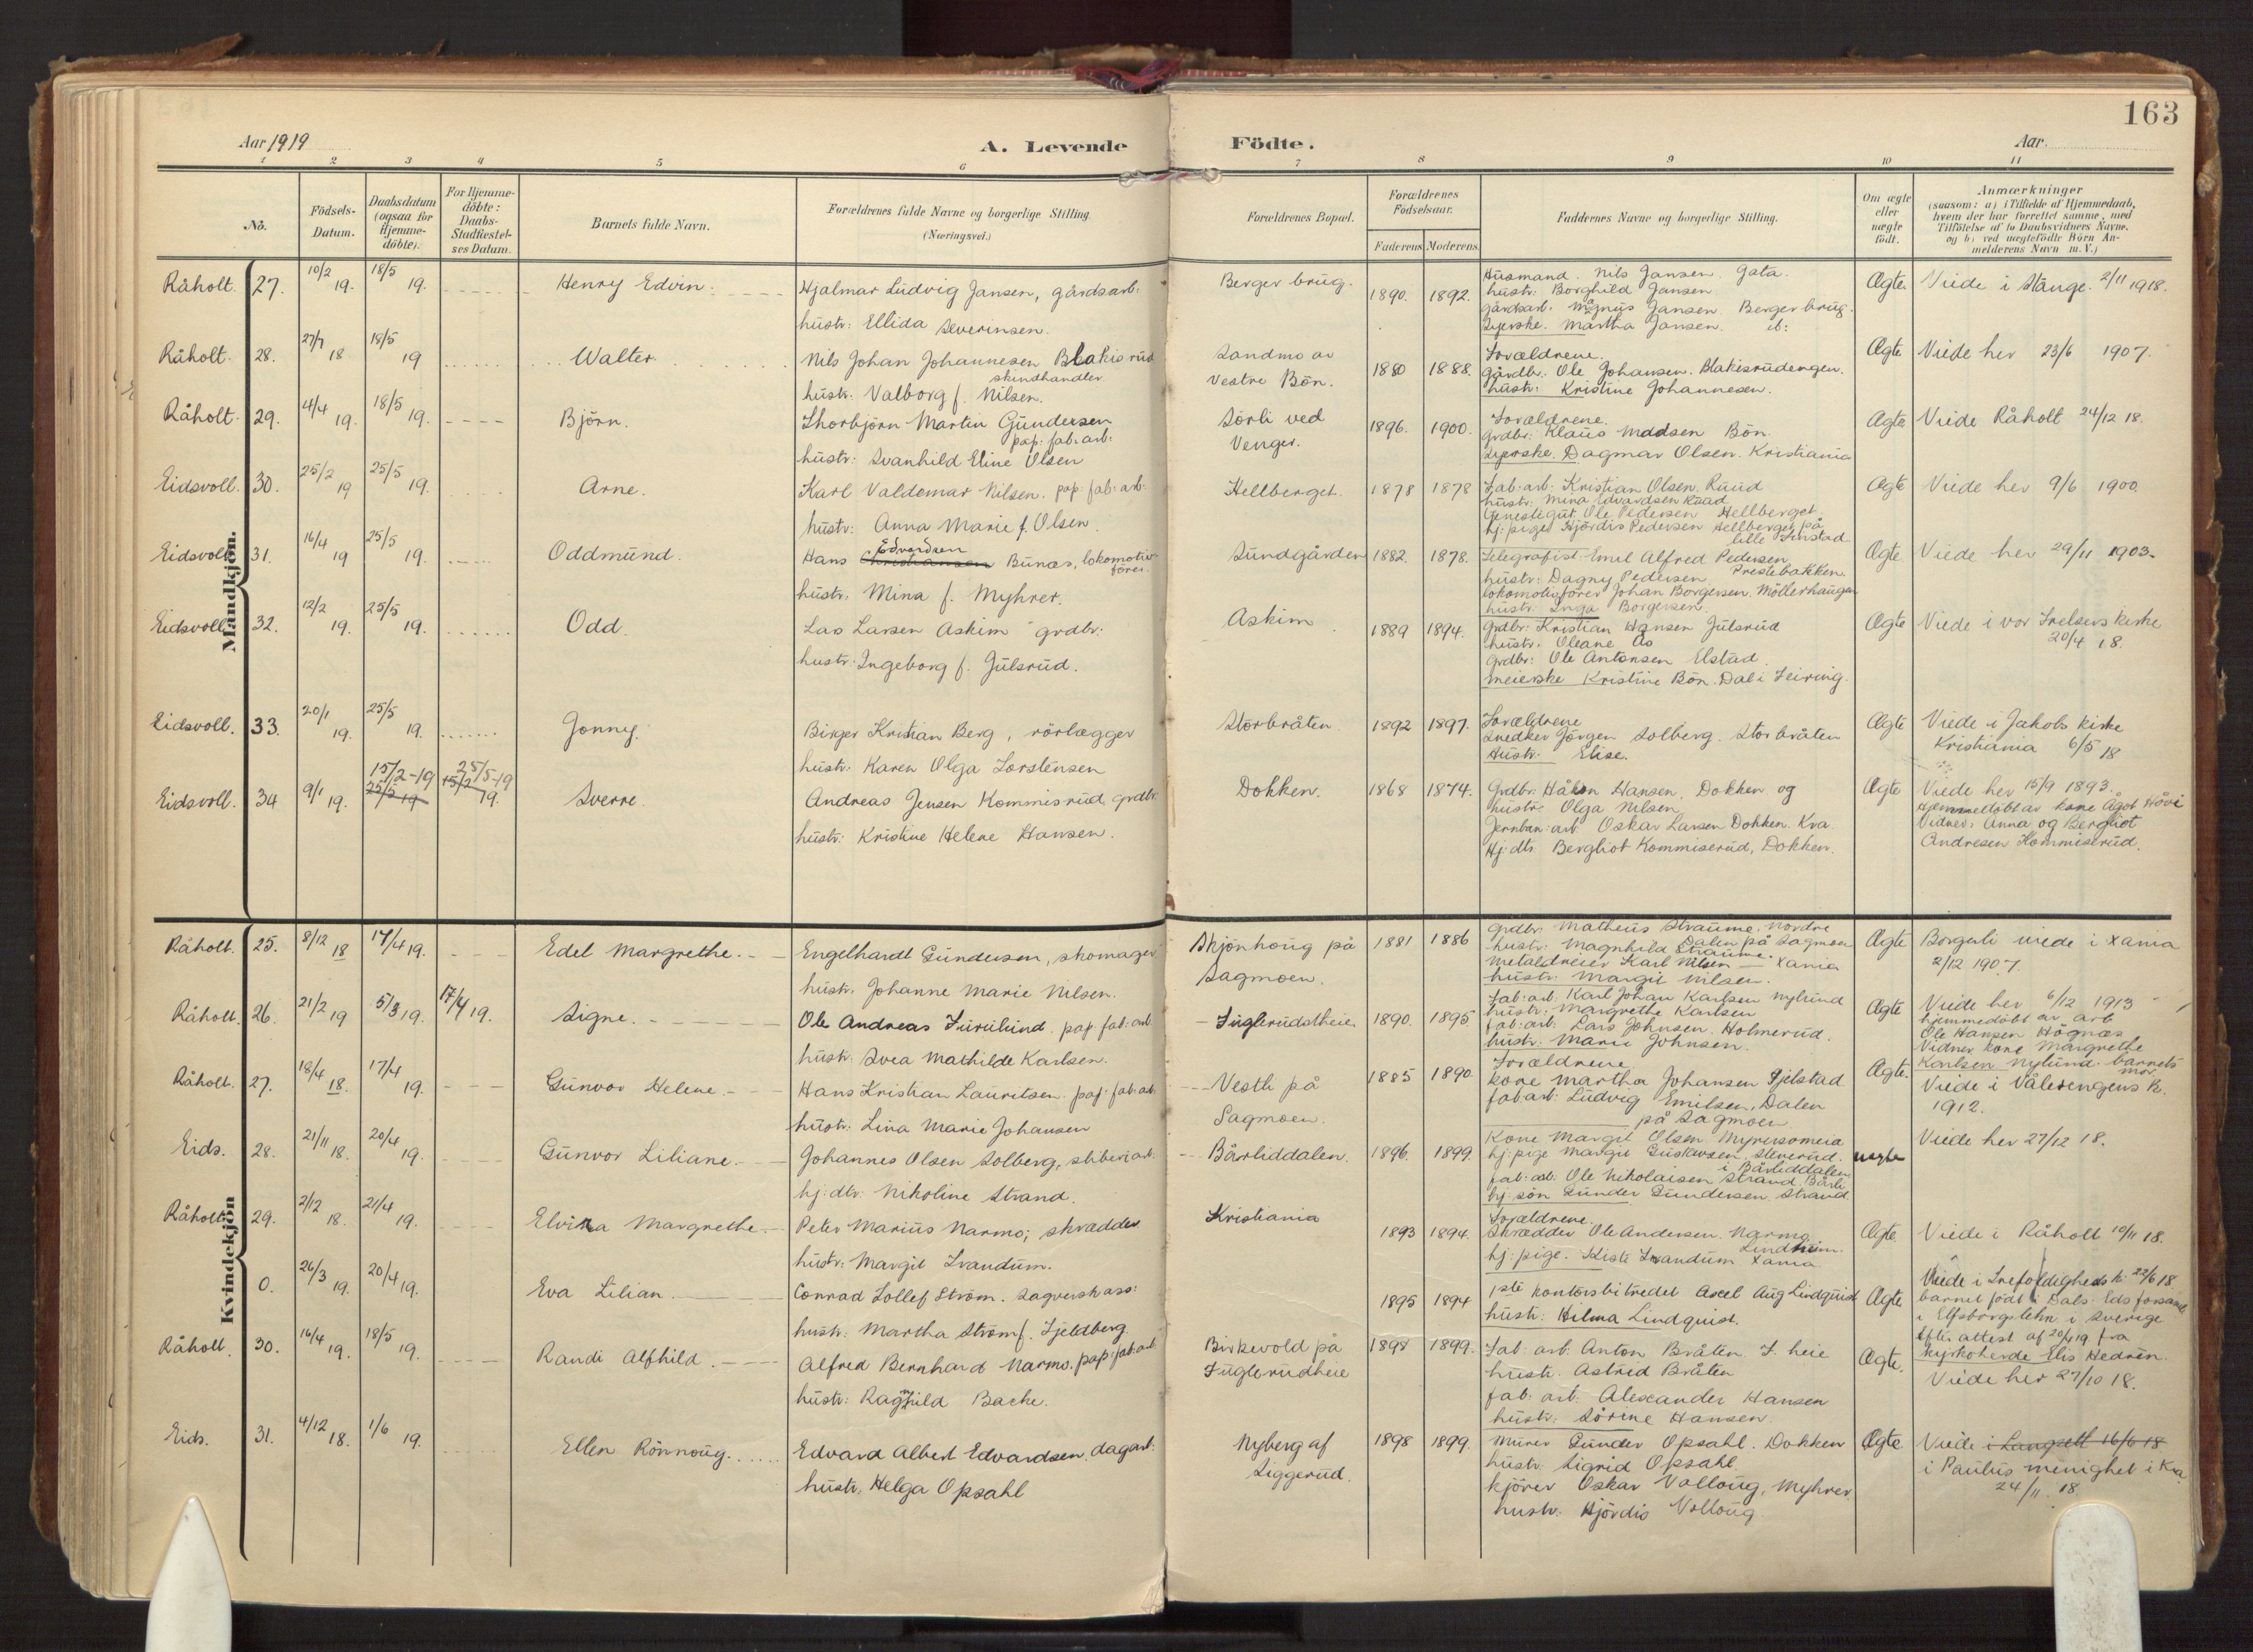 163
Aar 1919
A. Levende
Födte.
Aar.
1 2 3 4 5 6 7 8 9 10 11
No.
Födsels-
Datum.
Daabsdatum
(ogsaa for
Hjemme-
döbte).
For Hjemme-
döbte:
Daabs-
Stadfæstel-
ses Datum.
Barnets fulde Navn.
Forældrenes fulde Navne og borgerlige Stilling.
(Næringsvei.)
Forældrenes Bopæl.
Forældrenes
Födselsaar.
Faderens Moderens
Faddernes Navne og borgerlige Stilling.
Om ægte
eller
uægte
födt.
Anmærkninger
(saasom: a) i Tilfælde af Hjemmedaab,
hvem der har forrettet samme, med
Tilföielse af to Daabsvidners Navne.
og b) ved uægtefödte Börn An-
melderens Navn m. V.)
Mandkjön.
Råholt. 27. 10/2 19. 18/5 19. Henry Edvin.
Hjalmar Ludvig Jansen, gårdsarb:
hustr: Ellida Severinsen.
Berger brug. 1890. 1892.
Husmand. Nils Jansen. Gata.
hustr: Borghild Jansen.
gårdsarb. Magnus Jansen. Berger brug.
Syerske. Martha Jansen. ib:
Ægte. Viede i Stange. 2/11 1918.
Råholt. 28. 27/7 18 18/5 19 Walter.
Nils Johan Johannesen Blakisrud
skindhandler
hustr: Valborg f. Nilsen.
Sandmo av
Vestre Bön. 1880 1888.
Forældrene.
Gårdbr. Ole Johansen. Blakisrudengen.
hustr: Kristine Johannesen.
Ægte. Viede her 23/6 1907.
Råholt. 29. 4/4 19. 18/5 19. Björn.
Thorbjörn Martin Gundersen
pap: fab: arb:
hustr: Svanhild Eline Olsen
Sörli ved
Venger. 1896. 1900.
Forældrene.
grdbr: Klaus Madsen Bön.
Syerske. Dagmar Olsen. Kristiania
Ægte Viede Råholt 24/12 18.
Eidsvoll. 30. 25/2 19 25/5 19. Arne.
Karl Valdemar Nilsen. pap: fab: arb:
hustr: Anna Marie f. Olsen.
Hellberget. 1878 1878
Fab: arb: Kristian Olsen. Ruud
hustr: Mina Edvardsen Ruud
Tjenestegut. Ole Pedersen Hellberget.
hj: pige Hjördis Pedersen Hellberget på
lille Finstad
Ægte Viede her 9/6 1900.
Eidsvoll. 31. 16/4 19 25/5 19. Oddmund.
Edvardsen
Hans Christiansen Bunæs, lokomotiv-
förer.
hustr: Mina f. Myhrer.
Sundgården 1882. 1878.
Telegrafist. Emil Alfred Pedersen
hustr: Dagny Pedersen Prestebakken.
lokomotivförer Johan Borgersen. Möllerhaugen
hustr: Inga Borgersen.
Ægte. Viede her 29/11 1903.
Eidsvoll. 32. 12/2 19. 25/5 19. Odd.
Lars Larsen Askim grdbr:
hustr: Ingeborg f. Julsrud.
Askim 1889 1894.
grdbr: Kristian Hansen Julsrud
hustr: Oleane Ås
grdbr: Ole Antonsen Elstad.
meierske Kristine Bön. Dal i Feiring.
Ægte Viede i vor Frelsers kirke
20/4 18.
Eidsvoll. 33. 20/1 19. 25/5 19. Jonny.
Birger Kristian Berg, rörlægger
hustr: Karen Olga Torstensen
Storbråten 1892 1897.
Forældrene
Snedker Jörgen Solberg. Storbråten
Hustr: Elise.
Ægte Viede i Jakobs kirke
Kristiania 6/5 18
Eidsvoll. 34 9/1 19. 15/2-19 25/5-19
25/5 19 15/2 19. Sverre.
Andreas Jensen Kommisrud, grdbr.
hustr: Kristine Helene Hansen.
Dokken. 1868 1874.
Grdbr. Håkon Hansen, Dokken og
hustr: Olga Nilsen
Jernban: arb. Oskar Larsen Dokken. Kra.
Hj: dtr. Bergliot Kommiserud, Dokken.
Ægte Viede her 15/9 1893.
Hjemmedöbt av kone Ågot Hövi
Vidner: Anna og Bergliot
Andresen Kommiserud.
Kvindekjön
Råholt. 25. 8/12 18 17/4 19. Edel Margrethe.
Engelhardt Gundersen, skomager
hustr. Johanne Marie Nilsen.
Skjönhoug på
Sagmoen. 1881 1886
Grdbr: Matheus Straume. Nordre
hustr: Magnhild Straume. Dalen på Sagmoen
Metaldreier Karl Nilsen Xania
hustr: Margit Nilsen.
Ægte Borgerli viede i Xania
2/12 1907.
Råholt. 26. 21/2 19 5/3 19. 17/4 19. Signe.
Ole Andreas Furulund. pap fab: arb.
hustr. Svea Mathilde Karlsen.
Fuglerudsheie 1890. 1895
fab: arb: Karl Johan Karlsen Nylund
hustr: Margrethe Karlsen
fab: arb: Lars Johnsen. Holmerud.
hustr: Marie Johnsen.
Ægte Viede her 6/12 1913
hjemmedöbt av arb
Ole Hansen Högnæs
Vidner kone Margrethe
Karlsen Nylund. barnets
mor.
Råholt. 27. 18/4 18. 17/4 19. Gunvor Helene.
Hans Kristian Lauritsen. pap: fab: arb.
hustr: Lina Marie Johansen
Vestli på
Sagmoen. 1885 1890.
Forældrene
kone Martha Johansen Fjelstad
fab: arb: Ludvig Emilsen, Dalen
på Sagmoen.
Ægte. Viede i Vålerengens k.
1912.
Eids. 28. 21/11 18. 20/4 19. Gunvor Liliane.
Johannes Olsen Solberg, sliberiarb.
hj: dtr: Nikoline Strand.
Bårliddalen. 1896. 1899.
Kone Margit Olsen
hj: pige Margit Gustavsen
i Bårliddalen
fab: arb: Ole Nikolaisen Strand Bårli
hj: sön Gunder Gundersen Strand
uægte Viede her 27/12 18.
Råholt. 29. 2/12 18. 21/4 19. Elvira Margrethe.
Peter Marius Narmo; skrædder
hustr: Margit Trandum.
Kristiania 1893 1894.
Forældrene.
Skrædder Ole Andersen. Narmo
Lindheim.
hj: pige. Kista Trandum Xania.
Ægte. Viede i Råholt 10/11 18.
0. 26/3 19. 20/4 19. Eva Lilian.
Conrad Tollef Ström. Sagverksass:
hustr: Martha Ström f. Fjeldberg.
1895 1894
1ste kontorsbitredet Axel Aug Lindquist
hustr: Hilma Lindquist.
Ægte Viede i Trefoldigheds k: 22/6 18
barnet födt i Dals-Eds forsaml
i Elfsborgslehn i Sverige
Efter attest af 20/4 19 fra
kyrkoherde Elis Hedrén.
Råholt. 30. 16/4 19. 18/5 19. Randi Alfhild.
Alfred Bernhard Narmo. pap: fab: arb.
hustr: Ragnhild Bache.
Birkevold på
Fuglerudheie 1898 1899.
Fab: arb: Anton Bråten F. heie
hustr. Astrid Bråten
fab: arb: Alexander Hansen
hustr: Sörine Hansen
Ægte. Viede her 27/10 18.
Eids. 31. 4/12 18. 1/6 19. Ellen Rönnoug.
Edvard Albert Edvardsen. dagarb:
hustr: Helga Opsahl
Nyberg af
Liggerud. 1898 1899.
Murer Gunder Opsahl. Dokken
hustr: Sigrid Opsahl
kjörer Oskar Volloug, Myhrer.
hustr: Hjördis Volloug.
Ægte Viede i Langsett 16/6 18
i Paulus menighet i Kra
24/11 18